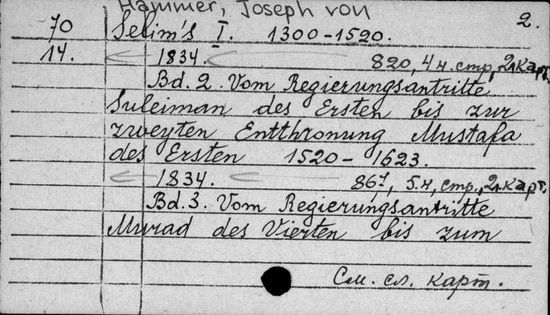 Hammer, Joseph von
2.
70 Selim's I. 1300-1520.
14. 1834. 820, 4 н. стр., 2л. карт.
Bd. 2. Vom Regierungsantritte
Suleiman des Ersten bis zur
zweyten Entthronung Mustafa
des Ersten 1520- 1623.
1834. 867, 5.н, стр., 2л. карт.
Bd. 3. Vom Regierungsantritte
Murad des Vierten bis zum
См. сл. карт.